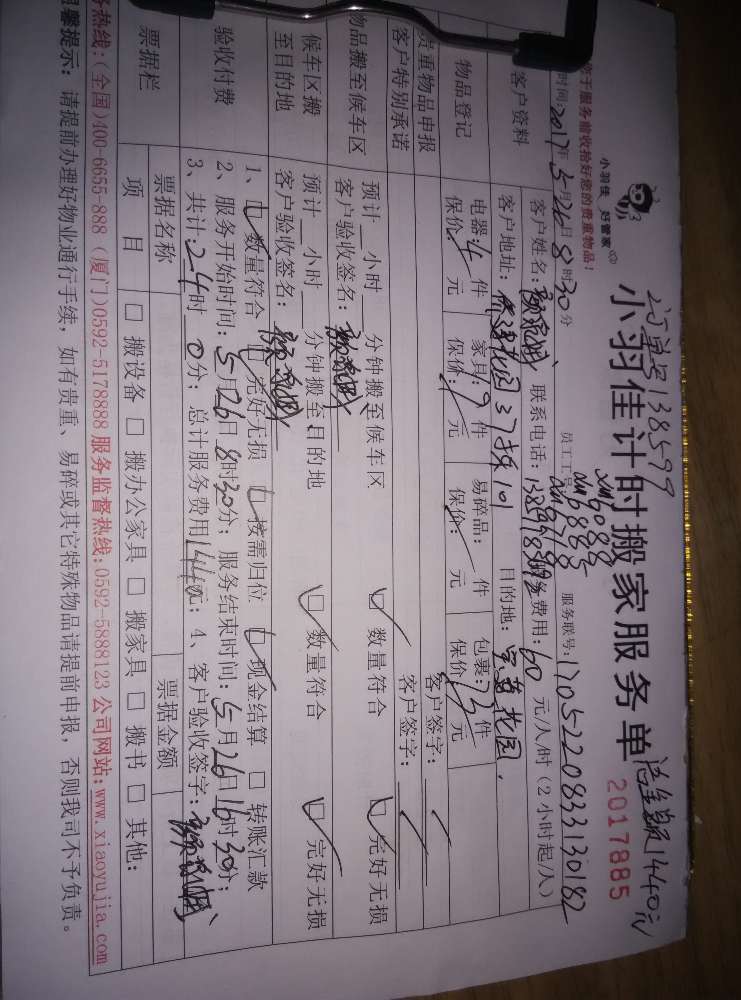 订单号138599
总金额1440元
小羽佳计时搬家服务单
2017885
小羽佳 好管家
您于服务前收拾好您的贵重物品!
时间:2017年5月26日8时30分 员工工号: 服务联号:1705220833130182
客户资料
客户姓名: 联系电话: 服务费用:60元/人/时(2小时起/人)
客户地址: 花园37栋101 目的地: 花园
物品登记
电器:4件 家具:9件 易碎品: 件 包裹: 件
保价: 元 保价: 元 保价: 元 保价: 元
贵重物品申报 客户签字:
客户特别承诺 客户签字:
物品搬至候车区
预计__小时__分钟搬至候车区 数量符合 完好无损
客户验收签名:
候车区搬
至目的地
预计__小时__分钟搬至目的地 数量符合 完好无损
客户验收签名:
验收付费
1、数量符合 完好无损 按需归位 现金结算 转账汇款
2、服务开始时间:5月26日8时30分;服务结束时间:5月26日16时30分;
3、共计:24时0分;总计服务费用1440元;4、客户验收签字:
票据栏
票据名称 票据金额
项目 搬设备 搬办公家具 搬家具 搬书 其他:
务热线:(全国)400-6655-888 (厦门)0592-5178888 服务监督热线:0592-5888123 公司网站:www.xiaoyujia.com
温馨提示:请提前办理好物业通行手续,如有贵重、易碎或其它特殊物品请提前申报,否则我司不予负责。